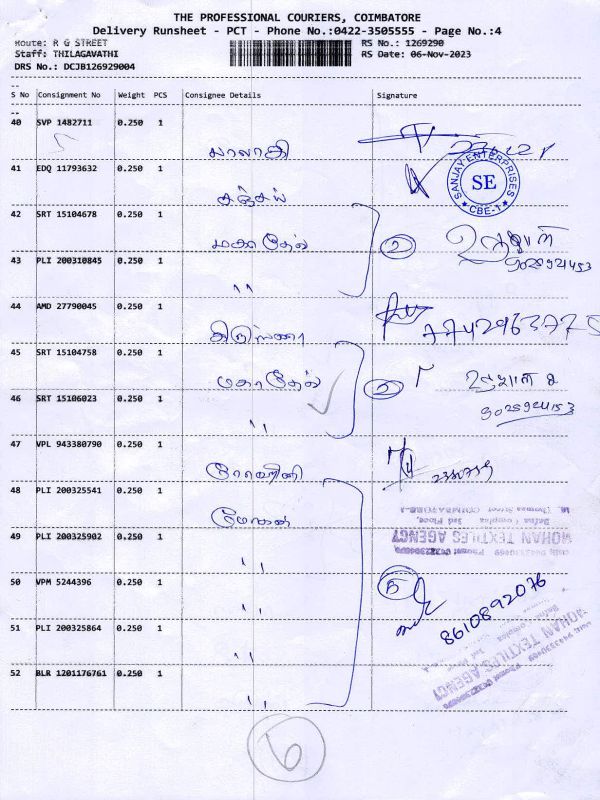 THE PROFESSIONAL COURIERS, COIMBATORE
Delivery Runsheet - PCT - Phone No.:0422-3505555 - Page No.:4
Route: R G STREET RS No.: 1269290
Staff: THILAGAVATHI RS Date: 06-Nov-2023
DRS No.: DCJB126929004
--
S No Consignment No Weight PCS Consignee Details Signature
--
40 SVP 1482711 0.250 1
பாலாகி
41 EDQ 11793632 0.250 1 SANJAY ENTERPRISES SE CBE-1
சஞ்சய்
42 SRT 15104678 0.250 1
மகாதேவ் 2
43 PLI 200310845 0.250 1 9025921453
"
44 AMD 27790045 0.250 1
கிருஸ்ணா
45 SRT 15104758 0.250 1
மகாதேவ் 2
46 SRT 15106023 0.250 1 9025921453
"
47 VPL 943380790 0.250 1
48 PLI 200325541 0.250 1
மோகன்
49 PLI 200325902 0.250 1 MOHAN TEXTILES AGENCY
"
50 VPM 5244396 0.250 1 5
" 8610892076
51 PLI 200325864 0.250 1 MOHAN TEXTILES AGENCY
"
52 BLR 1201176761 0.250 1
"
6